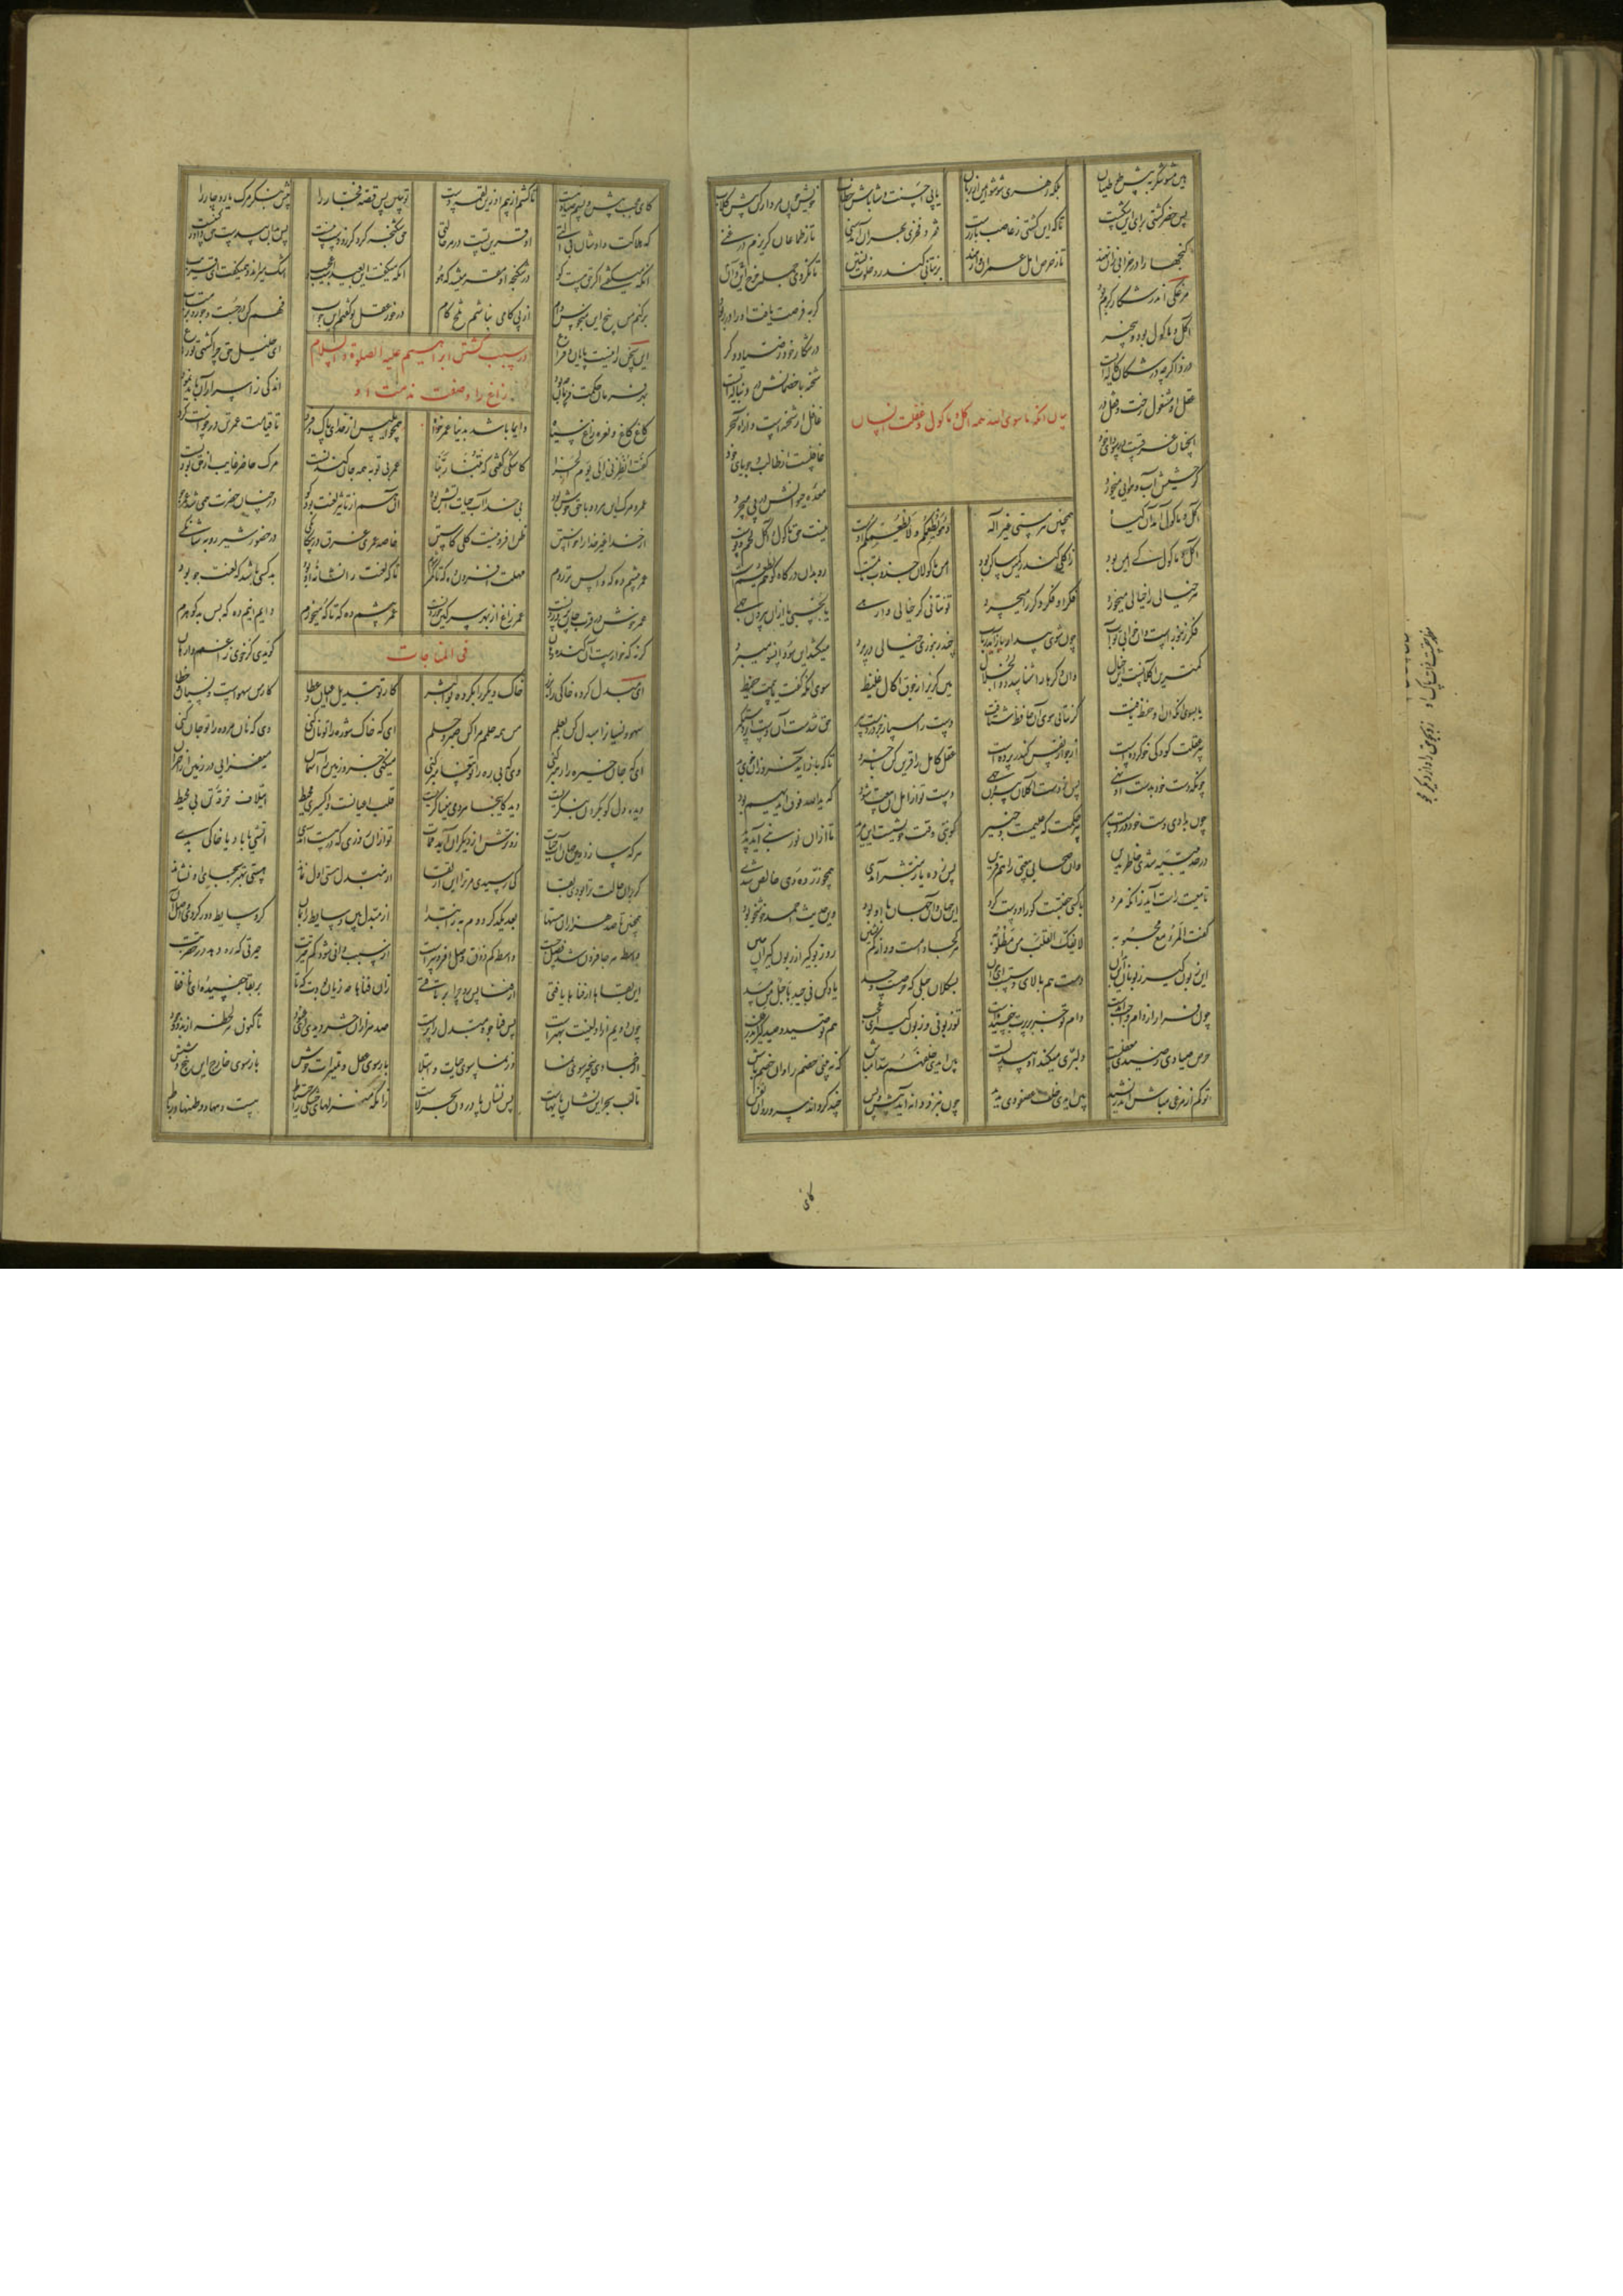 هین مشو شکر به پیش
بلکه زهری شو شو ایمن از زیان
یا پی احسنت و شاباش خطاب
خویش چون مردار کن پیش کلاب
پس خضر کشتی برای این شکست
تا که این کشتی ز غاصب باز رست
فقر و فخری بهر آن آمد سنی
تا ز طماعان گریزم در غنی
گنجها را در خرابی زان نهند
تا ز حرص اهل عمران وا رهند
پر نتانی کند رو خلوت گزین
تا نگردی جمله خرج این و آن
مرغکی اندر شکار کرم بود
گربه فرصت یافت او را در ربود
آکل و ماکول بود و بیخبر
در شکار خود ز صیاد دگر
دزد اگرچه در شکار کاله ایست
شحنه با خصمانش در دنباله ایست
عقل او مشغول رخت و قفل و در
غافل از شحنه است و از آه سحر
آنچنان غرقست در سودای خود
غافلست از طالب و جویای خود
گر حشیش آب و هوایی میخورد
معده حیوانش در پی میچرد
بیان آنکه ماسوی الله همه آکل و ماکول و غفلت انسان
آکل و ماکول آمد آن گیا
همچنین هر هستی غیر اله
و هو یطعمکم و لا یطعم چو اوست
نیست حق ماکول و آکل لحم و پوست
آکل و ماکول کی ایمن بود
زاکلی کاندر کمین ساکن بود
امن ماکولان جذوب ماتمست
رو بدان درگاه کو لا یطعمست
هر خیالی را خیالی میخورد
فکر او فکر دگر را میچرد
تو نتانی کز خیالی وارهی
یا بخسپی یا ازان بیرون جهی
فکر زنبورست و آن خواب تو آب
چون شوی بیدار باز آید ذباب
چند زنبوری خیالی در پرد
میکشد این سو و آنسو میبرد
کمترین آکلانست این خیال
وان دگرها را شناسد ذوالجلال
هین گریز از جوق اکال غلیظ
سوی آنکه گفت مائیمت حفیظ
یا بسوی آنکه او آن حفظ یافت
گر نتانی سوی آن حافظ شتافت
دست را مسپار جز در دست پیر
حق شدست آن دست او را دستگیر
پیر عقلت کودکی خو کرده است
از جوار نفس کاندر پرده است
عقل کامل را قرین کن با خرد
تا که باز آید خرد زان خوی بد
چونکه دست خود بدست او نهی
پس ز دست آکلان بیرون جهی
دست تو از اهل آن بیعت شود
که ید الله فوق ایدیهم بود
چون بدادی دست خود در دست پیر
پیر حکمت که علیمست و خبیر
کو نبی وقت خویشست ای مرید
تا ازان نور نبی آید پدید
در حدیبیه شدی حاضر بدین
وان صحابی بیعتی را هم قرین
پس ز ده یار مبشر آمدی
همچو زر ده دهی خالص شدی
تا معیت راست آید زانکه مرد
با کسی جفتست کو را دوست کرد
این جهان و آن جهان با او بود
وین حدیث احمد خوشخو بود
گفت المرء مع محبوبه
لا یفک القلب من مطلوبه
هر کجا دامست و دانه کم نشین
رو زبون گیرا زبون گیران ببین
ای زبون گیر زبونان این بدان
دست هم بالای دستست ای جوان
بسکلان حبلی که حرصست و حسد
یاد کن فی جیدها حبل مسد
تو زبونی و زبون گیری عجب
هم تو صید و صیدگیر اندر طلب
حرص صیادی ز صیدی مغفلست
دلبری میکند او بیدلست
بین ایدی خلفهم سدا مباش
که نه بینی خصم را وان خصم فاش
تو کم از مرغی مباش اندر نشید
بین ایدی خلف عصفوری بدید
چون بنزد دانه آید پیش و پس
چند گرداند سر و رو آن نفس
کای
کای عجب پیش و پسم صیاد هست
تا کشم از بیم او زین لقمه دست
تو ببین پس قصه فجار را
پیش بنگر مرگ یار و جار را
که هلاکت دادشان بی آلتی
او قرین تست در هر حالتی
حق شکنجه کرد و گرز و دست نیست
پس بدان بی دست حق داور کنیست
آنکه میگفتی اگر حق هست کو
در شکنجه او مقر میشد که هو
آنکه میگفت این بعیدست و عجیب
اشک میراند و میگفت ای قریب
برکنم من میخ این منحوس دام
از پی کامی نباشم تلخ کام
در خور عقل تو گفتم این جواب
فهم کن وز جست و جو رو بر متاب
این سخن را نیست پایان و فراغ
ای خلیل حق چرا کشتی تو زاغ
بهر فرمان حکمت فرمان چه بود
اندکی ز اسرار آن باید نمود
در سبب کشتن ابراهیم علیه الصلوة و السلام
زاغ را و صفت مذمت او
کاغ کاغ و نعره زاغ سیاه
دایما باشد بدنیا عمر خواه
همچو ابلیس از خدای پاک فرد
تا قیامت عمر تن درخواست کرد
گفت انظرنی الی یوم الجزا
کاشکی گفتی که تبنا ربنا
عمر بی توبه همه جان کندنست
مرگ حاضر غایب از حق بودنست
عمر و مرگ این هر دو با حق خوش بود
بی خدا آب حیات آتش بود
آن هم از تاثیر لعنت بود کو
در چنان حضرت همی شد عمر جو
از خدا غیر خدا را خواستن
ظن افزونیست کلی کاستن
خاصه عمری غرق در بیگانگی
در حضور شیر روبه شانگی
عمر بیشم ده که تا پس تر روم
مهلت افزون ده که تا کمتر شوم
تا که لعنت را نشانه او بود
بد کسی باشد که لعنت جو بود
عمر خوش در قرب جان پروردنست
عمر زاغ از بهر سرگین خوردنست
عمر بیشم ده که تا گه میخورم
دایم اینم ده که بس بدگوهرم
گرنه گه خوارست آن گنده دهان
گویدی کز خوی زاغم وارهان
فی المناجات
ای مبدل کرده خاکی را بزر
خاک دیگر را بکرده بوالبشر
کار تو تبدیل اعیان و عطا
کار من سهوست و نسیان و خطا
سهو و نسیان را مبدل کن بعلم
من همه حلمم مرا کن صبر و حلم
ای که خاک شوره را تو نان کنی
وی که نان مرده را تو جان کنی
ای که جان خیره را رهبر کنی
وی که بی ره را تو پیغمبر کنی
میکنی جزو زمین را آسمان
میفزایی در زمین از اختران
دیده دل کو بگردون بنگریست
دید کاینجا هر دمی میناگریست
قلب اعیانست و اکسیری محیط
ایتلاف خرقه تن بی مخیط
هر که سازد زین جهان آب حیات
زودترش از دیگران آید ممات
تو ازان روزی که در هست آمدی
آتشی یا باد یا خاکی بدی
گر بدان حالت ترا بودی بقا
کی رسیدی مر ترا این ارتقا
از مبدل هستی اول نماند
هستی بهتر بجای او نشاند
همچنین تا صد هزاران هستها
بعد یکدیگر دوم به ز ابتدا
از مبدل بین وسایط را بمان
کز وسایط دور گردی ز اصل آن
واسطه هر جا فزون شد وصل جست
واسطه کم ذوق وصل افزونترست
از سبب دانی شود کم حیرتت
حیرتی که ره دهد در حضرتت
این بقاها از فناها یافتی
از فنا پس رو چرا بر تافتی
زان فناها چه زیان بودت که تا
بر بقا چفسیده ای نافقا
چون دویم از اولینت بهترست
پس فنا جو و مبدل را پرست
صد هزاران حشر دیدی ای عنود
تا کنون هر لحظه از بدو وجود
از جمادی بیخبر سوی نما
وز نما سوی حیات و ابتلا
باز سوی عقل و تمییزات خوش
باز سوی خارج این پنج و شش
تا لب بحر این نشان پایهاست
پس نشان پا درون بحر لاست
زانکه منزلهای خشکی ز احتیاط
هست دهها و وطنها و رباط